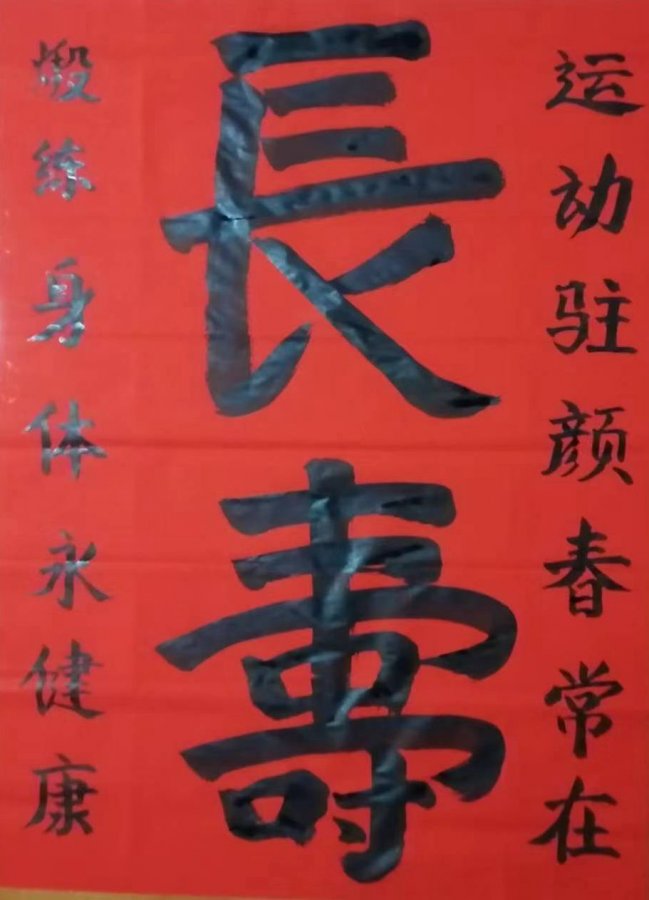 运动驻颜春常在
長壽
煅练身体永健康